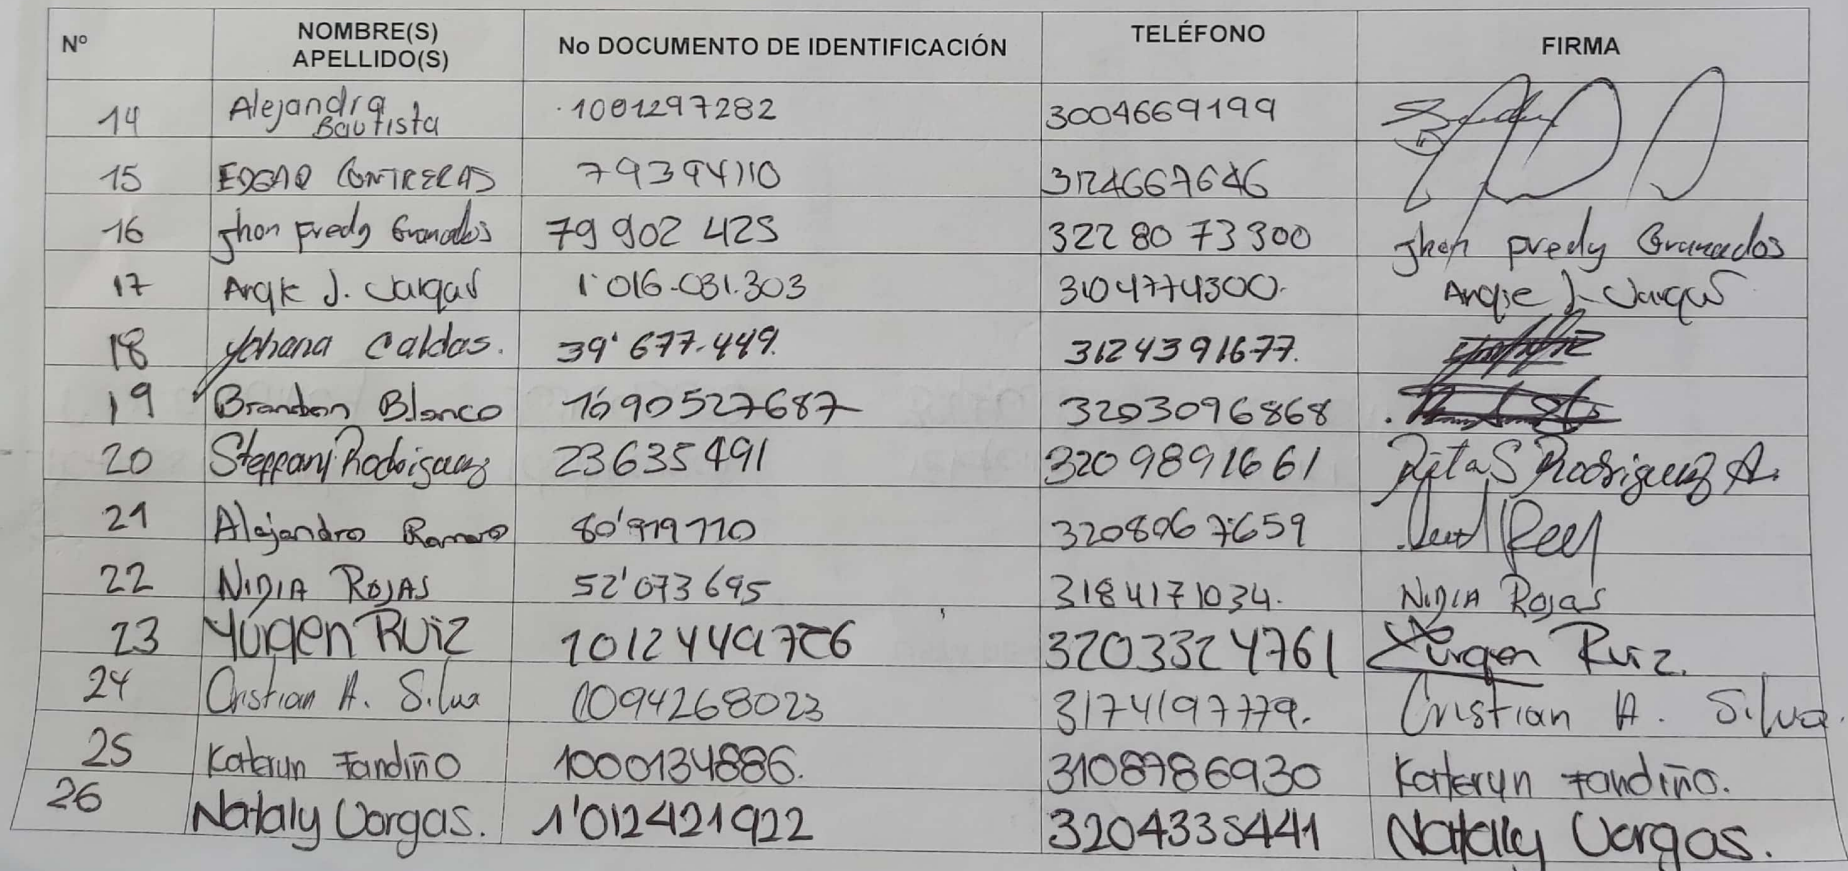 Nº NOMBRE(S) APELLIDO(S) No DOCUMENTO DE IDENTIFICACIÓN TELÉFONO FIRMA
14 Alejandra Bautista 1001297282 3004669199
15 EDGAR CONTRERAS 79394110 3124667646
16 Jhon Fredy Granados 79 902 425 322 80 73 300 Jhon Fredy Granados
17 Angie J. Vargas 1'016.031.303 3104774300. Angie J. Vargas
18 Yohana Caldas. 39'677.449. 3124391677.
19 Brandon Blanco 1690527687 3203096868
20 Steppany Rodriguez 23635491 3209891661 Rita S Rodriguez A.
21 Alejandro Romero 80'919710 3208067659
22 NIDIA ROJAS 52'073695 3184171034. NIDIA Rojas
23 Yurgen Ruiz 3203324761 Yurgen Ruiz.
24 Cristian A. Silva 1094268023 3174197779. Cristian A. Silva.
25 Kateryn Fandiño 1000134886. 3108786930 Kateryn Fandiño.
26 Nataly Vargas. 1'012421922 3204335441 Nataly Vargas.